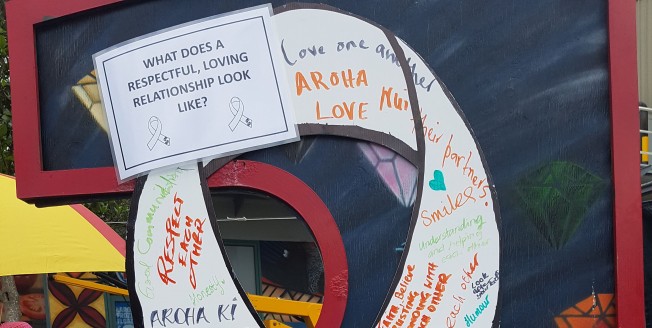 WHAT DOES A
RESPECTFUL, LOVING
RELATIONSHIP LOOK
LIKE?
Love one another
AROHA NUI
LOVE
their partners.
Smiles!
Understanding
and helping
each other
Good Communication
RESPECT
EACH
OTHER
Honesty
AROHA KI
Believe
WITH
OTHER
each other
Look
Humour